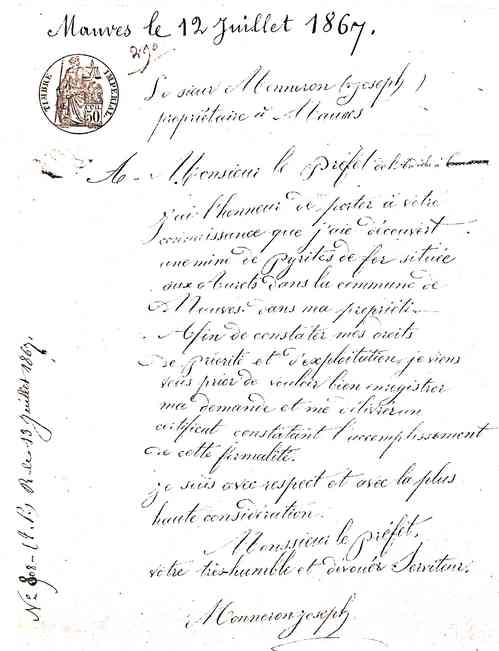 Mauves le 12 Juillet 1867.
290
TIMBRE IMPÉRIAL
50 CEN
Le sieur Monneron (Joseph)
propriétaire à Mauves
A Monsieur le Préfet de
J'ai l'honneur de porter à votre
connaissance que j'aie découvert
une mine de Pyrites de fer située
aux dans la commune de
Mauves dans ma propriété.
Afin de constater mes droits
de priorité et d'exploitation, je viens
vous prier de vouloir bien enregistrer
ma demande et me délivrer un
certificat constatant l'accomplissement
de cette formalité.
je suis avec respect et avec la plus
haute considération.
Monsieur le préfet,
votre très humble et dévouér Serviteur.
Monneron joseph
No 808 - R le 13 Juillet 1867.